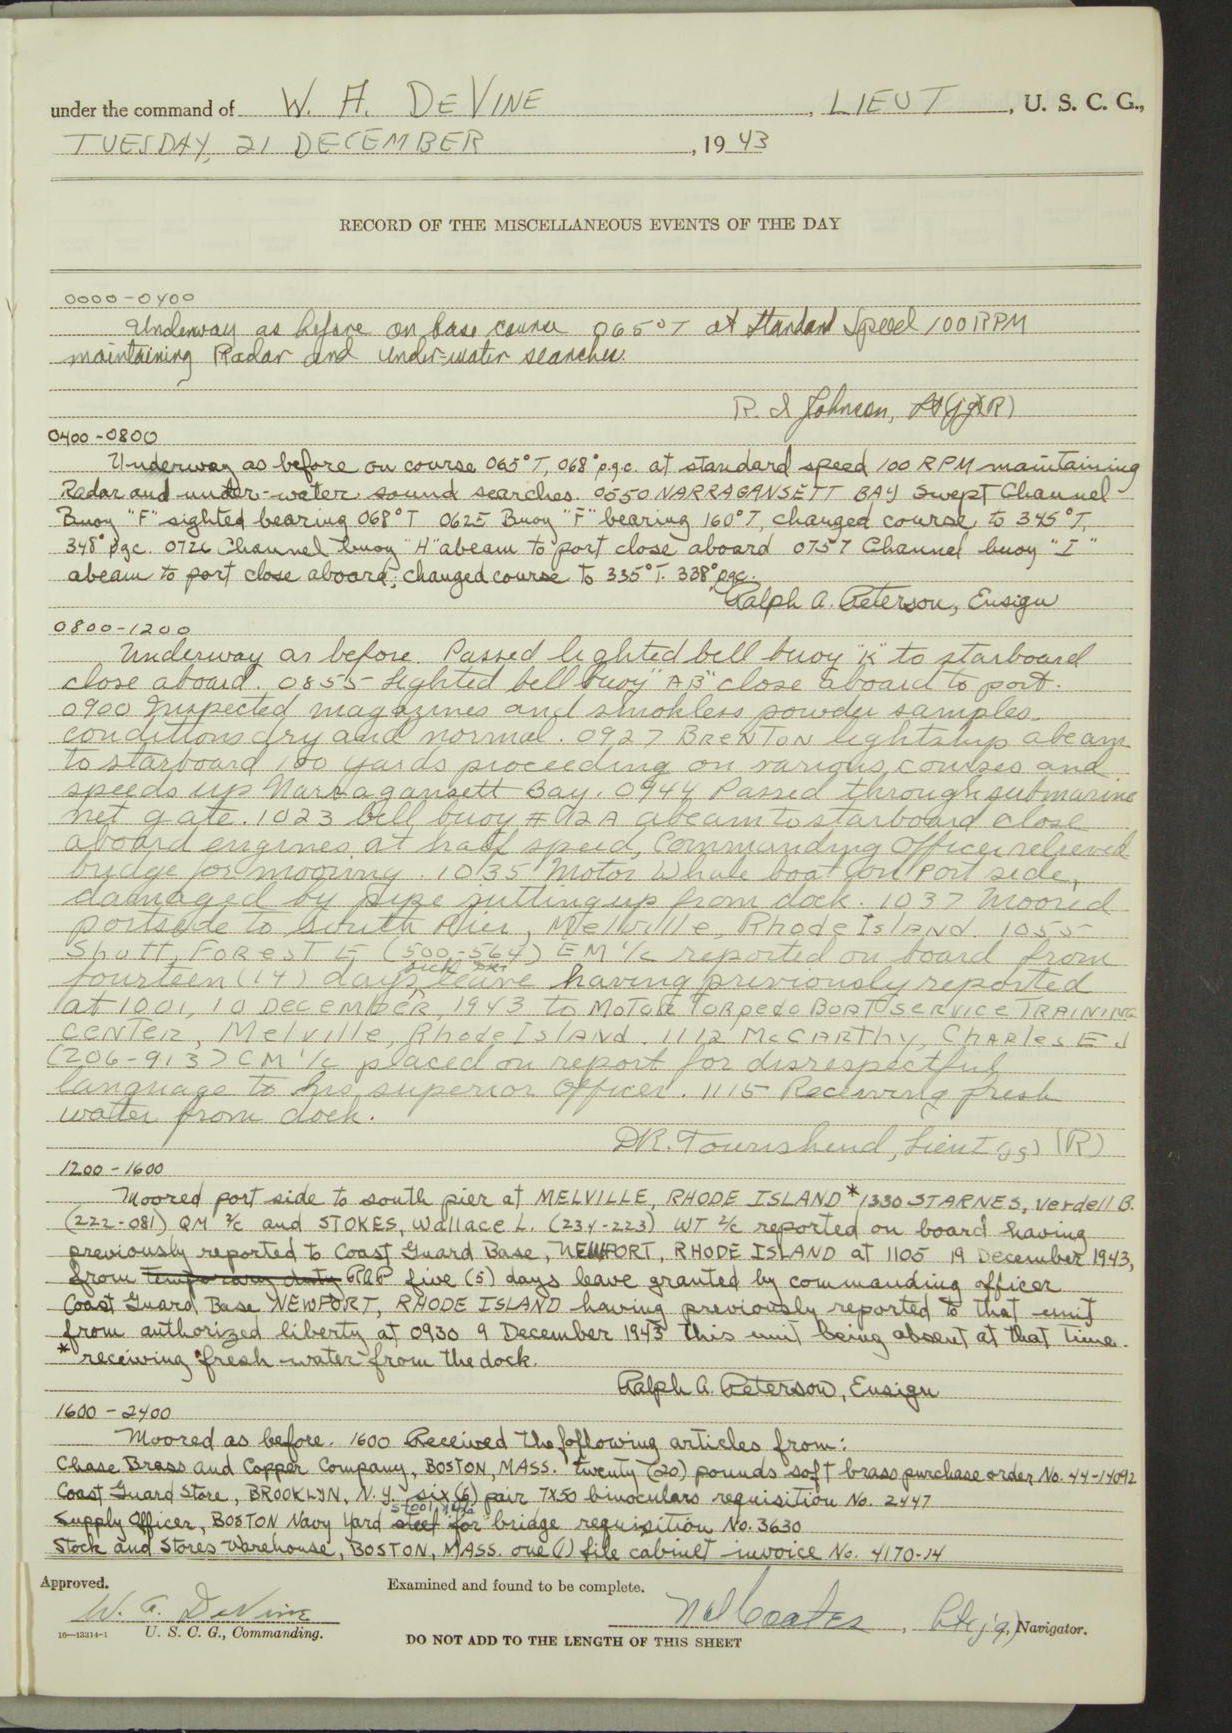 under the command of W. A. DeVINE, LIEUT, U. S. C. G.,
TUESDAY, 21 DECEMBER, 1943
RECORD OF THE MISCELLANEOUS EVENTS OF THE DAY
0000-0400
Underway as before on base course 065°T at Standard Speed 100 RPM
maintaining Radar and under-water searches.
R. I Johnson, Lt(jg)(R)
0400-0800
Underway as before on course 065°T, 068°p.g.c. at standard speed 100 RPM maintaining
Radar and under-water sound searches. 0550 NARRAGANSETT BAY Swept Channel
Buoy "F" sighted bearing 068°T 0625 Buoy "F" bearing 160°T, changed course to 345°T,
348°pgc. 0726 Channel buoy "H" abeam to port close aboard 0757 Channel buoy "I"
abeam to port close aboard; changed course to 335°T. 338°pgc.
Ralph A. Peterson, Ensign
0800-1200
Underway as before. Passed lighted bell buoy "K" to starboard
close aboard. 0855 lighted bell buoy "AB" close aboard to port.
0900 Inspected magazines and smokless powder samples.
conditions dry and normal. 0927 BRENTON lightship abeam
to starboard 100 yards proceeding on various courses and
speeds up Narragansett Bay. 0944 Passed through submarine
net gate. 1023 bell buoy # 12A abeam to starboard close
aboard engines at half speed, Commanding Officer relieved
bridge for mooring. 1035 Motor Whale boat on Port side,
damaged by pipe jutting up from dock. 1037 Moored
portside to South Pier, Melville, Rhode Island. 1055
Shutt, Forest E (500-564) EM 1/c reported on board from
fourteen (14) days sick leave having previously reported
at 1001, 10 DECEMBER, 1943 to MOTOR TORPEDO BOAT SERVICE TRAINING
CENTER, Melville, Rhode Island. 1112 McCARTHY, CHARLES E J
(206-913) CM 1/c placed on report for disrespectful
language to his superior Officer. 1115 Receiving fresh
water from dock.
DR. Townshend, Lieut (jg) (R)
1200-1600
Moored port side to south pier at MELVILLE, RHODE ISLAND * 1330 STARNES, Verdell B.
(222-081) QM 3/c and STOKES, Wallace L. (234-223) WT 2/c reported on board having
previously reported to Coast Guard Base, NEWPORT, RHODE ISLAND at 1105 19 December 1943,
from temporary duty RAP five (5) days leave granted by commanding officer
Coast Guard Base NEWPORT, RHODE ISLAND having previously reported to that unit
from authorized liberty at 0930 9 December 1943 this unit being absent at that time.
* receiving fresh water from the dock.
Ralph A. Peterson, Ensign
1600-2400
Moored as before. 1600 Received the following articles from:
Chase Brass and Copper Company, BOSTON, MASS. twenty (20) pounds soft brass purchase order No. 44-14092
Coast Guard Store, BROOKLYN, N.Y. six (6) pair 7X50 binoculars requisition No. 2447
Supply Officer, BOSTON Navy Yard steel stool for bridge requisition No. 3630
Stock and Stores Warehouse, BOSTON, MASS. one (1) file cabinet invoice No. 4170-14
Approved. Examined and found to be complete.
W. A. DeVine Coates, Lt(jg), Navigator.
16—13314-1 U. S. C. G., Commanding.
DO NOT ADD TO THE LENGTH OF THIS SHEET